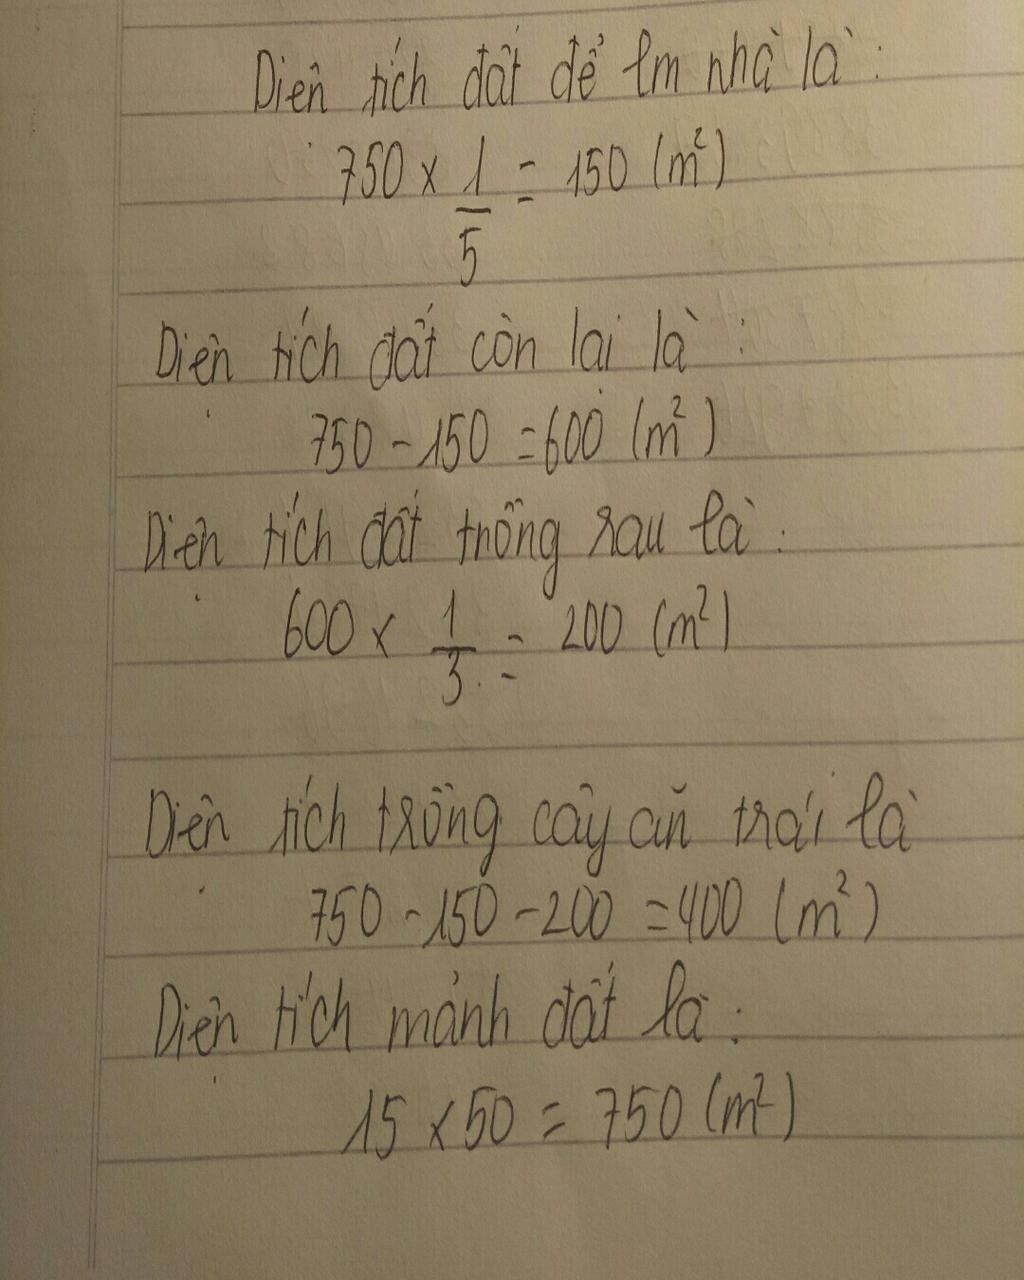 Diện tích đất để lm nhà là:
750 x 1/5 = 150 (m²)
Diện tích đất còn lại là:
750 - 150 = 600 (m²)
Diện tích đất trồng rau là:
600 x 1/3 = 200 (m²)
Diện tích trồng cây ăn trái là
750 - 150 - 200 = 400 (m²)
Diện tích mảnh đất là:
15 x 50 = 750 (m²)